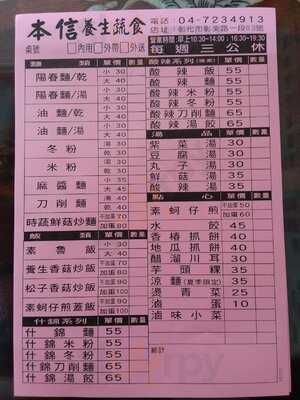 本信養生蔬食
電話：04-7234913
店址：彰化市彰美路一段83號
營業時間：早上10:30~14:00；16:30~19:30
每週三公休
桌號 □內用□外帶□外送
麵 類 單價 數量
陽春麵/乾 小 30 大 40
陽春麵/湯 小 30 大 40
油麵/乾 小 30 大 40
油麵/湯 小 30 大 40
冬粉 小 30 大 40
米粉 小 30 大 40
麻醬麵 小 35 大 45
刀削麵 小 40 大
時蔬鮮菇炒麵 不加蛋70 加蛋80
飯 類 單價 數量
素魯飯 小 30 大 40
養生香菇炒飯 不加蛋 加蛋90
松子香菇炒飯 加蛋100
素蚵仔煎蓋飯 加蛋
什錦系列 單價 數量
什錦麵 55
什錦米粉 55
什錦冬粉 55
什錦刀削麵 65
什錦湯餃 65
酸辣系列 單價 數量
酸辣飯 55
酸辣麵 55
酸辣米粉 55
酸辣冬粉 55
酸辣刀削麵 65
酸辣湯餃 65
湯 品 單價 數量
紫菜湯 30
豆腐湯 30
丸子湯 30
鮮菇湯 35
酸辣湯 35
點 心 單價 數量
素蚵仔煎 不加蛋50 加蛋60
水餃 45
香椿抓餅 40
地瓜抓餅 40
醋溜川耳 30
芋頭粿 35
涼麵(夏季限定) 35
燙青菜 25
滷蛋 10
滷味小菜
總計